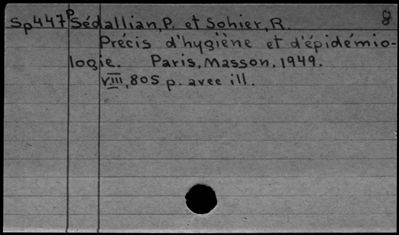 Sp447P Sédallian, P. et Sohier, R. 8
Précis d'hygiène et d'épidémio-
logie. Paris, Masson, 1949.
VIII, 805 p. avec ill.